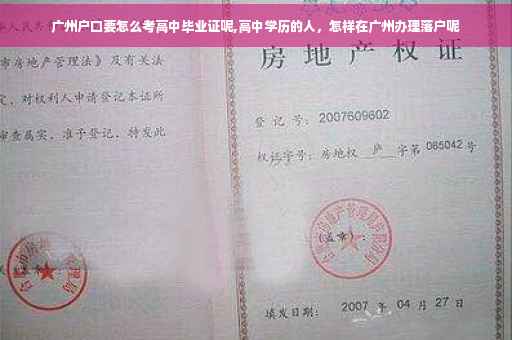 广州户口要怎么考高中毕业证呢,高中学历的人，怎样在广州办理落户呢
市房地产管理法》及有关法
定，对权利人申请登记本证所
审查属实，准予登记，特发此
房地产权证
登记号：2007609602
权证字号：房地权 庐 字第 065042 号
(盖章)：
填发日期： 2007 年 04 月 27 日